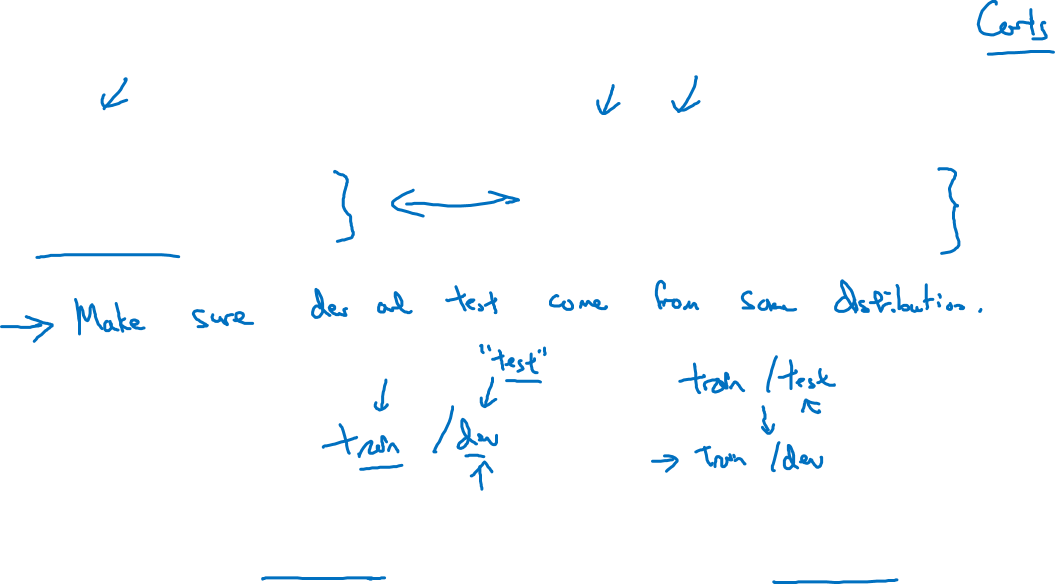 Cats
Make sure dev and test come from same distribution.
"test"
train / test
train / dev
train / dev